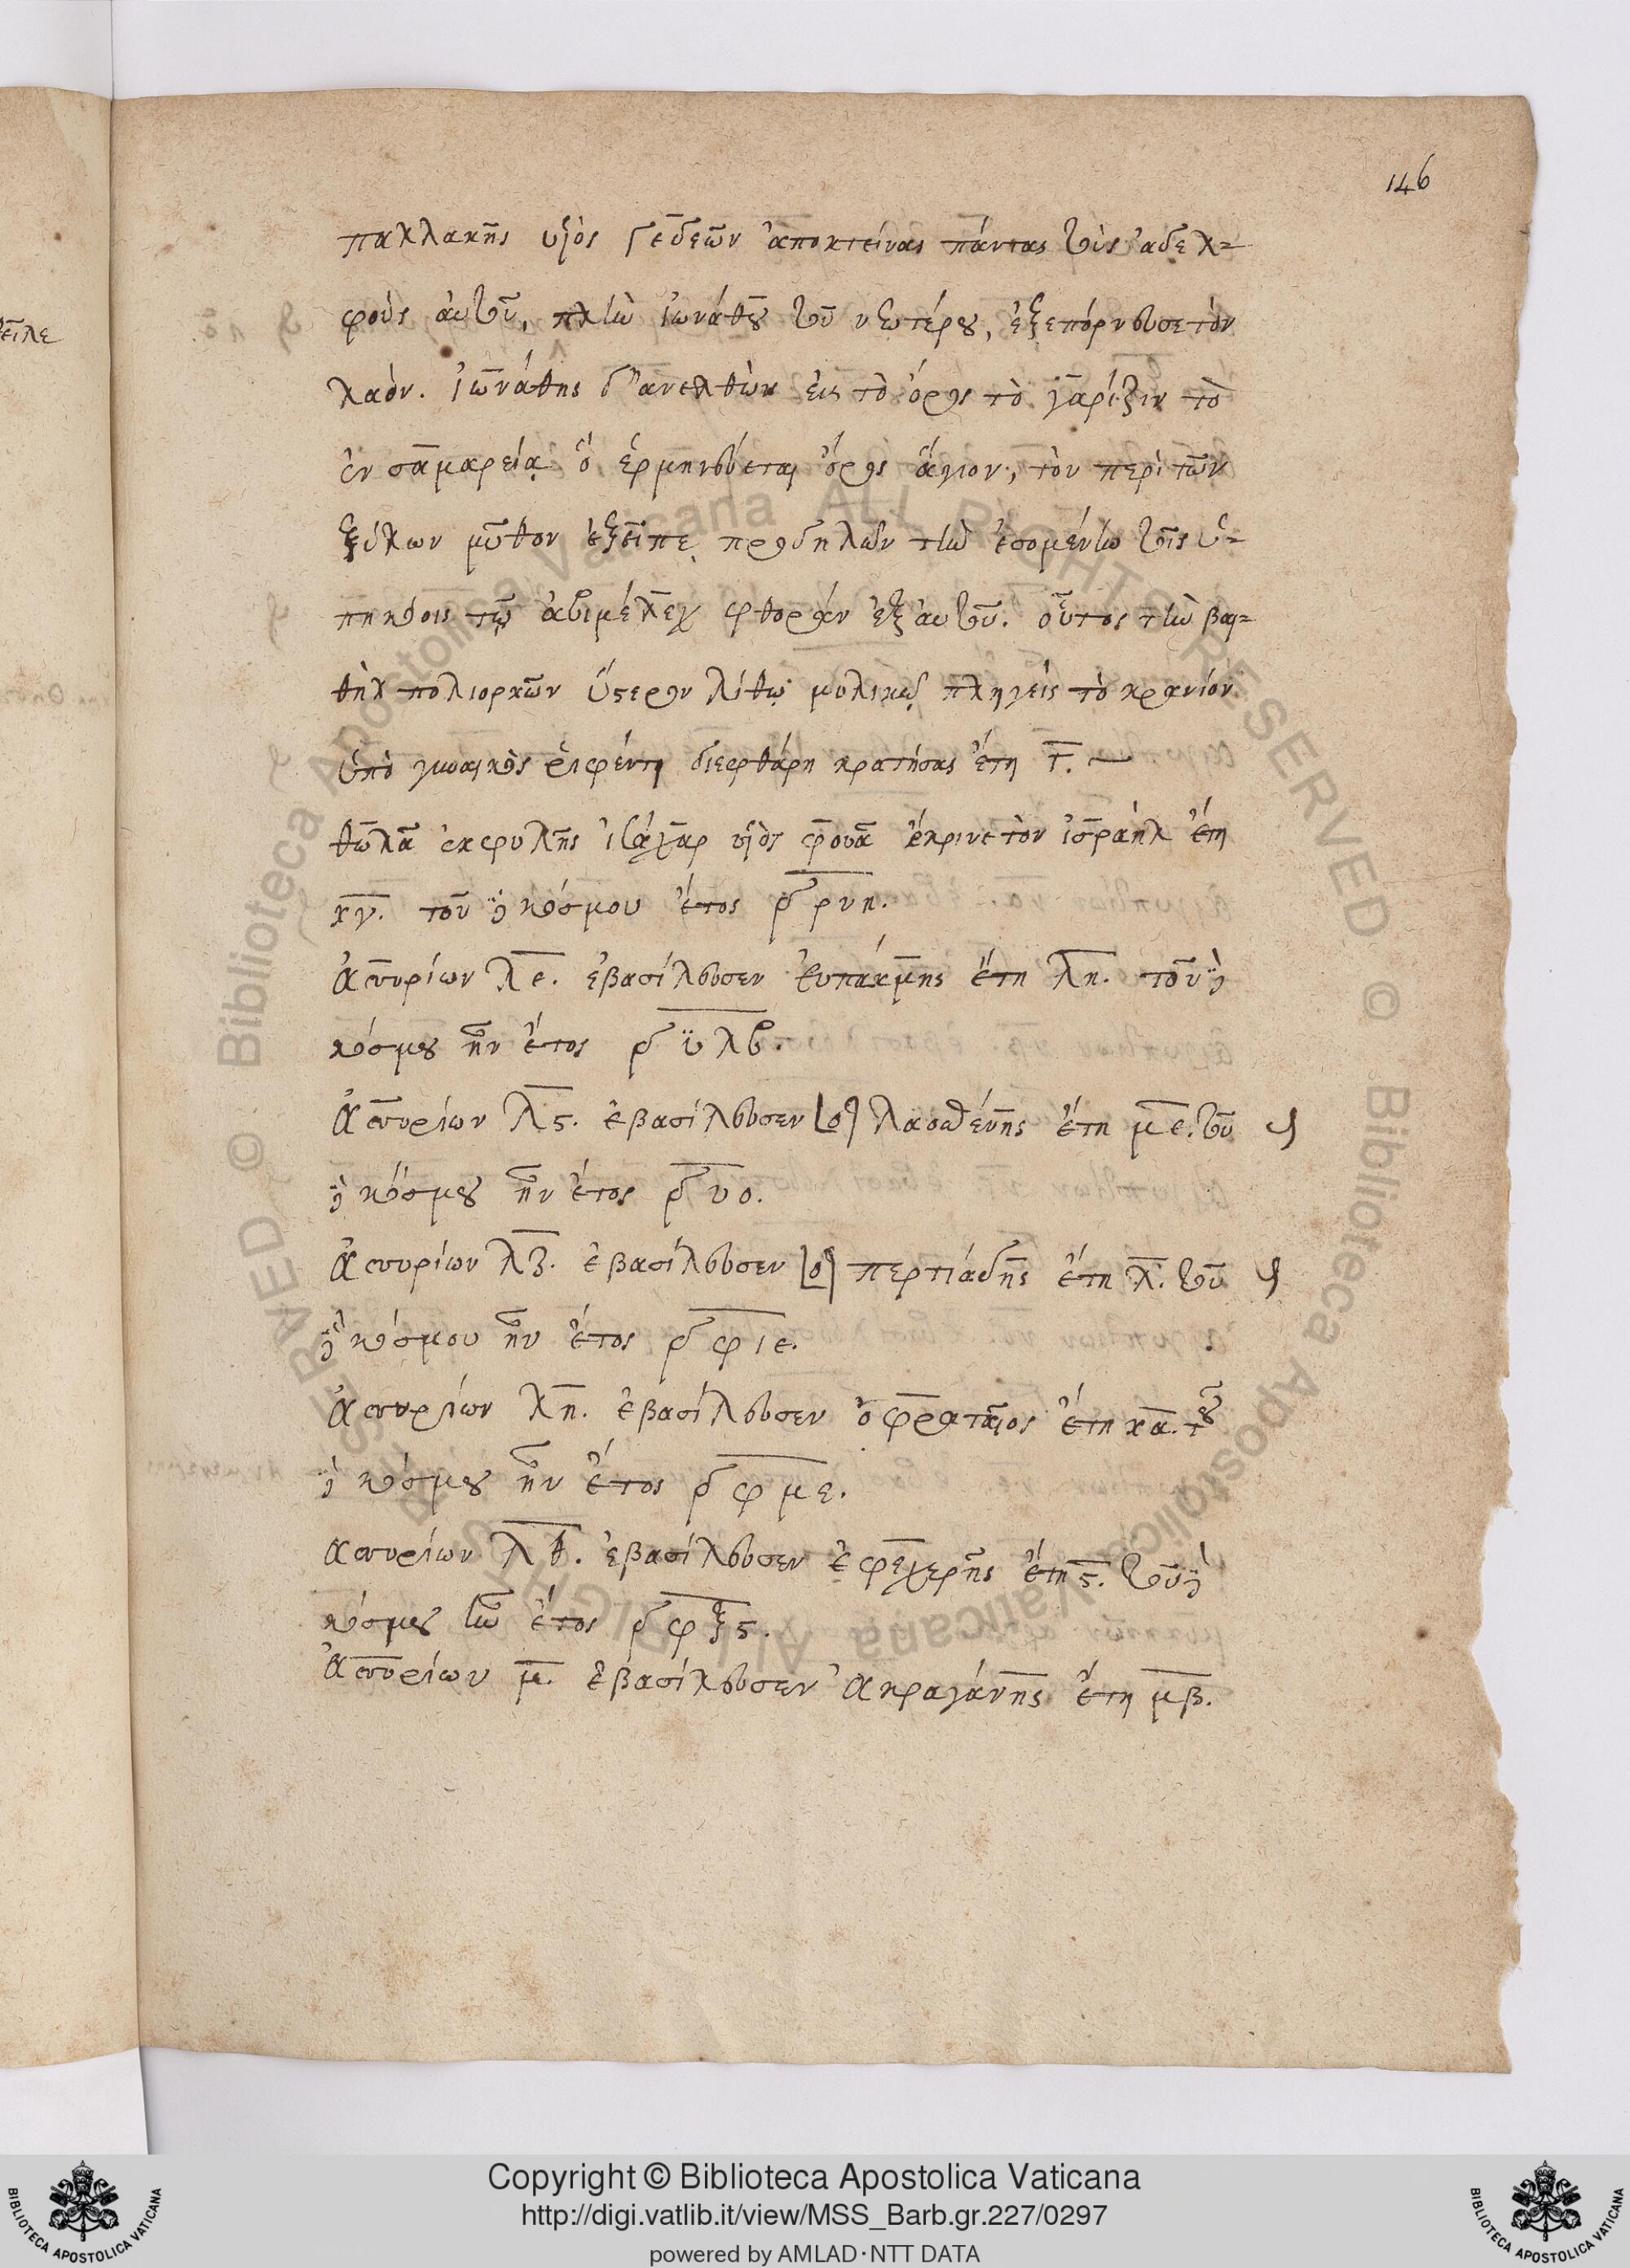 146
παλλακῆς υἱὸς γεδεὼν ἀποκτείνας πάντας τοὺς ἀδελ-
φοὺς αὐτοῦ, πλὴν ἰωνάθου τοῦ νεωτέρου, ἐξεπόρνευσε τὸν
λαόν. ἰωνάθης δ' ἀνελθὼν εἰς τὸ ὄρος τὸ γαρίζιν τὸ
ἐν σαμαρείᾳ ὃ ἑρμηνεύεται ὄρος ἅγιον, τὸν περὶ τῶν
ξύλων μῦθον ἐξεῖπε προδηλῶν τὴν ἐσομένην τοῖς ὑ-
πηκόοις τῷ ἀβιμέλεχ φθορὰν ἐξ αὐτοῦ. οὗτος τὴν βαι-
θὴλ πολιορκῶν ὕστερον λίθῳ μυλικῷ πληγεὶς τὸ κρανίον
ὑπὸ γυναικὸς ῥιφέντι διεφθάρη κρατήσας ἔτη γ.
θωλᾶ ἐκ φυλῆς ἰσάχαρ υἱὸς φουᾶ ἔκρινε τὸν ἰσραὴλ ἔτη
κγ. τοῦ δὲ κόσμου ἔτος δρνη.
Ἀσσυρίων λε. ἐβασίλευσεν εὐπάκμης ἔτη λη. τοῦ δὲ
κόσμου ἦν ἔτος δυλβ.
Ἀσσυρίων λς. ἐβασίλευσεν [ὁ] λαοσθένης ἔτη με. τοῦ
δὲ κόσμου ἦν ἔτος δυο.
Ἀσσυρίων λζ. ἐβασίλευσεν [ὁ] περτιάδης ἔτη λ. τοῦ
δὲ κόσμου ἦν ἔτος δφιε.
Ἀσσυρίων λη. ἐβασίλευσεν ὁ φραταῖος ἔτη κα. τοῦ
δὲ κόσμου ἦν ἔτος δφμε.
Ἀσσυρίων λθ. ἐβασίλευσεν ἐφεχερῆς ἔτη ς. τοῦ δὲ
κόσμου ἦν ἔτος δφξς.
Ἀσσυρίων μ. ἐβασίλευσεν ἀκραγάνης ἔτη μβ.
Copyright © Biblioteca Apostolica Vaticana
http://digi.vatlib.it/view/MSS_Barb.gr.227/0297
powered by AMLAD·NTT DATA
BIBLIOTECA APOSTOLICA VATICANA
BIBLIOTECA APOSTOLICA VATICANA